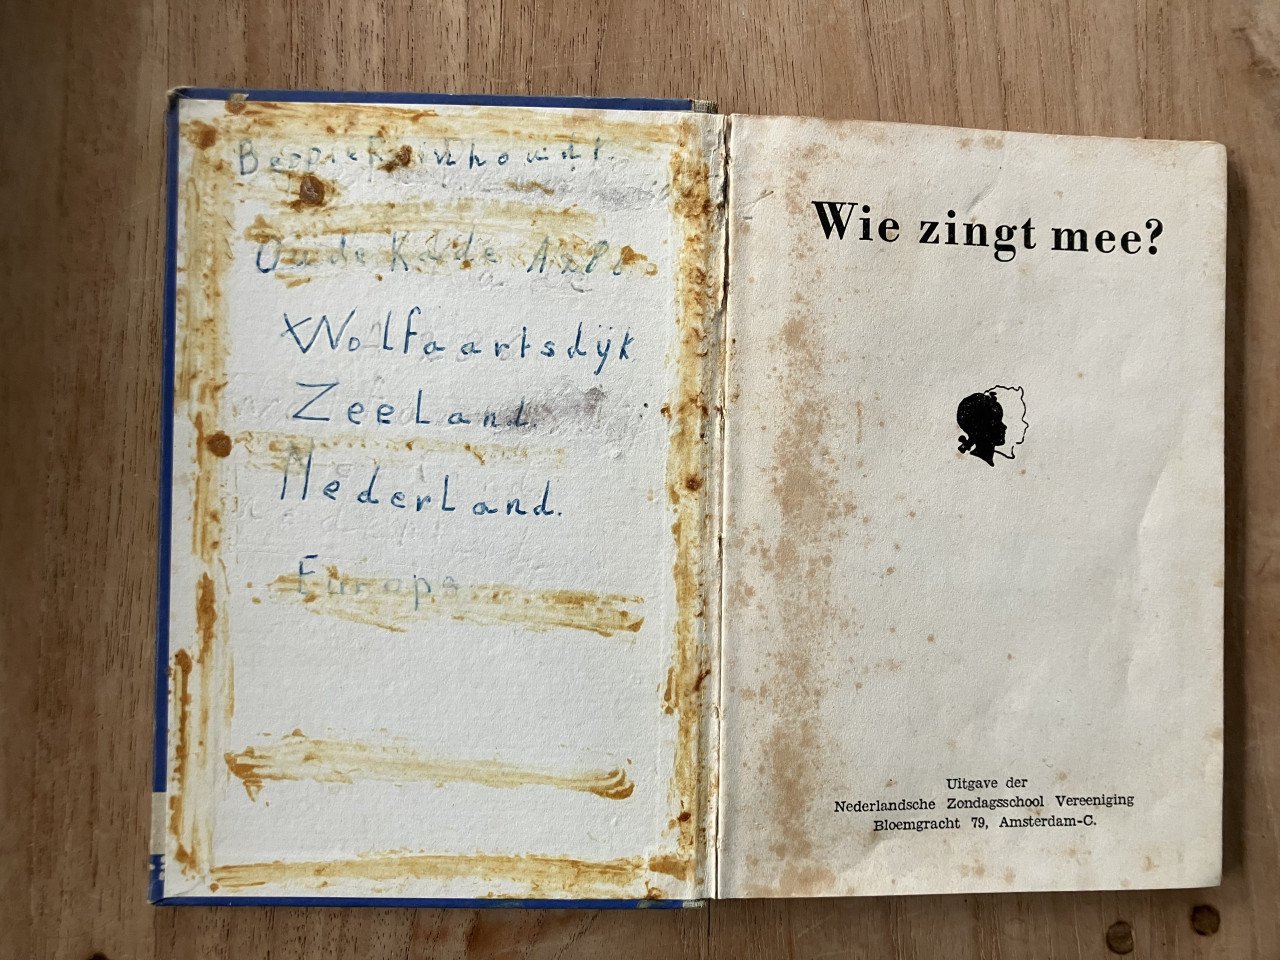 Oude Kade
Wolfaartsdijk
ZeeLand.
NederLand.
Europa
Wie zingt mee?
Uitgave der
Nederlandsche Zondagsschool Vereeniging
Bloemgracht 79, Amsterdam-C.